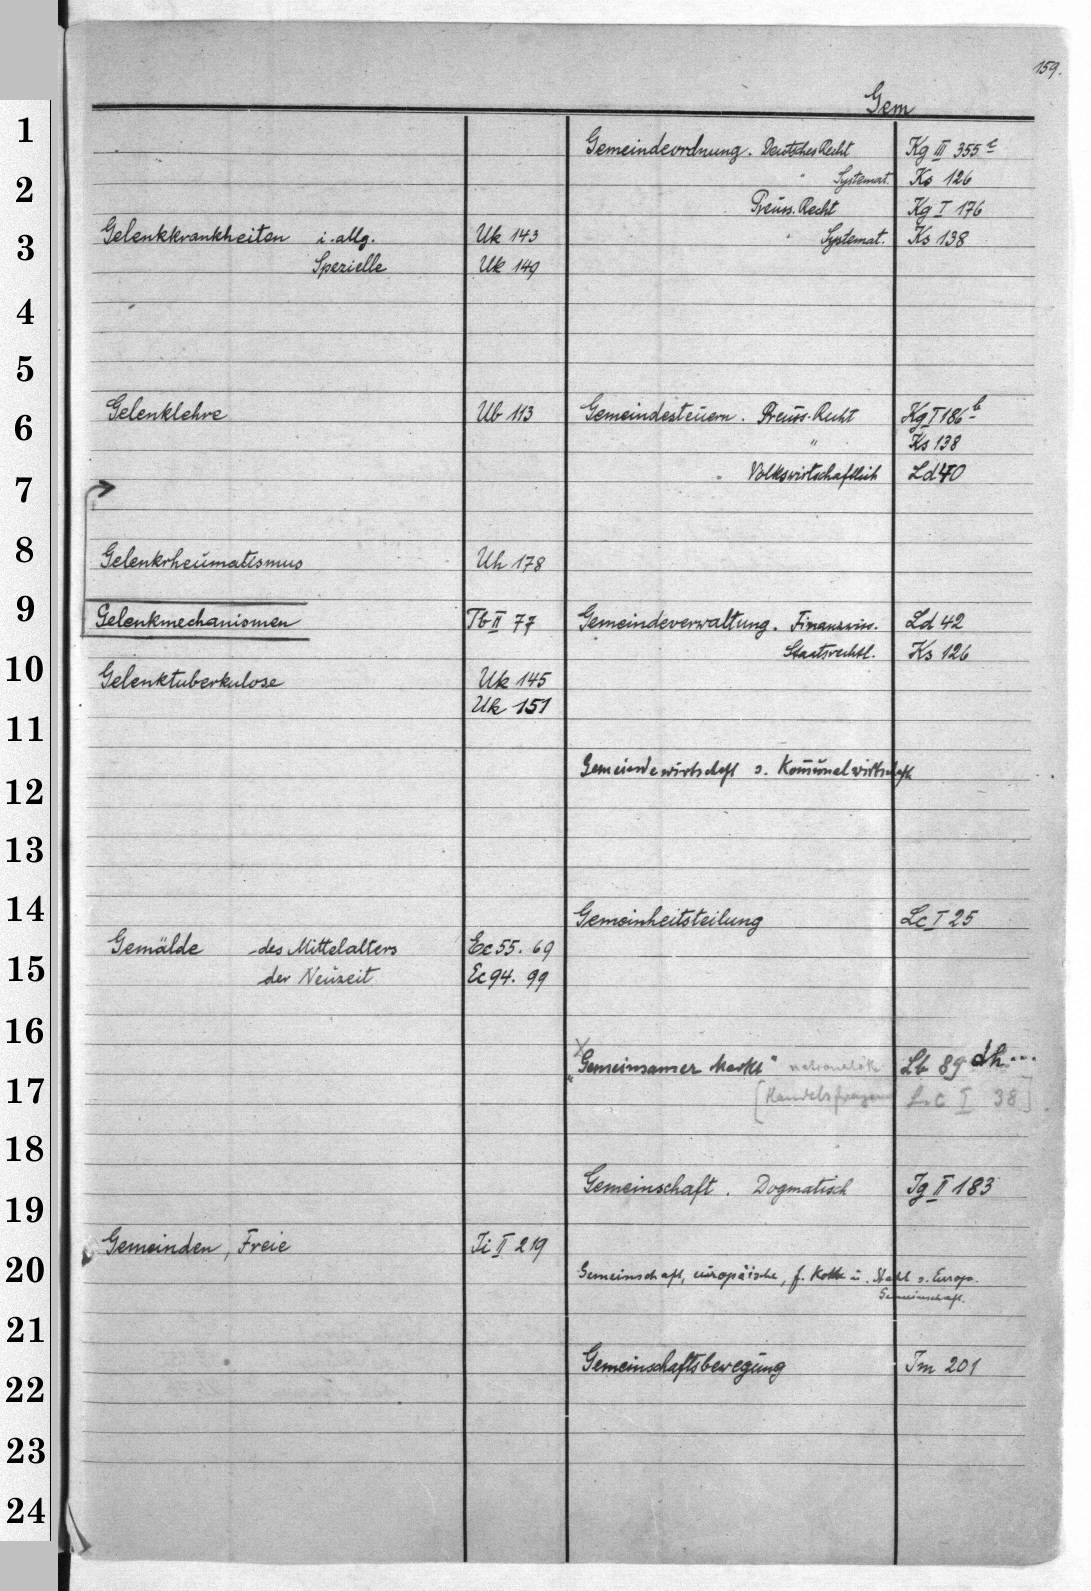 159.
Gem
1
2
3
4
5
6
7
8
9
10
11
12
13
14
15
16
17
18
19
20
21
22
23
24
Gelenkkrankheiten i. allg. Uk 143
Spezielle Uk 149
Gelenklehre Ub 113
Gelenkrheumatismus Uh 178
Gelenkmechanismen Tb II 77
Gelenktuberkulose Uk 145
Uk 151
Gemälde des Mittelalters Ec 55. 69
der Neuzeit Ec 94. 99
Gemeinden, Freie Ti II 219
Gemeindeordnung. Deutsches Recht Kg III 355 c
" Systemat. Ks 126
Preuss. Recht Kg I 176
" Systemat. Ks 138
Gemeindesteuern. Preuss. Recht Kg I 186 b
" Ks 138
" Volkswirtschaftlich Ld 40
Gemeindeverwaltung. Finanzwiss. Ld 42
Staatsrechtl. Ks 126
Gemeindewirtschaft s. Kommunalwirtschaft
Gemeinheitsteilung Lc I 25
"Gemeinsamer Markt" Lb 89 dh...
[Handelsfragen Lc I 38]
Gemeinschaft. Dogmatisch Tg II 183
Gemeinschaft, europäische, f. Kohle u. Stahl s. Europ.
Gemeinschaft.
Gemeinschaftsbewegung Tm 201